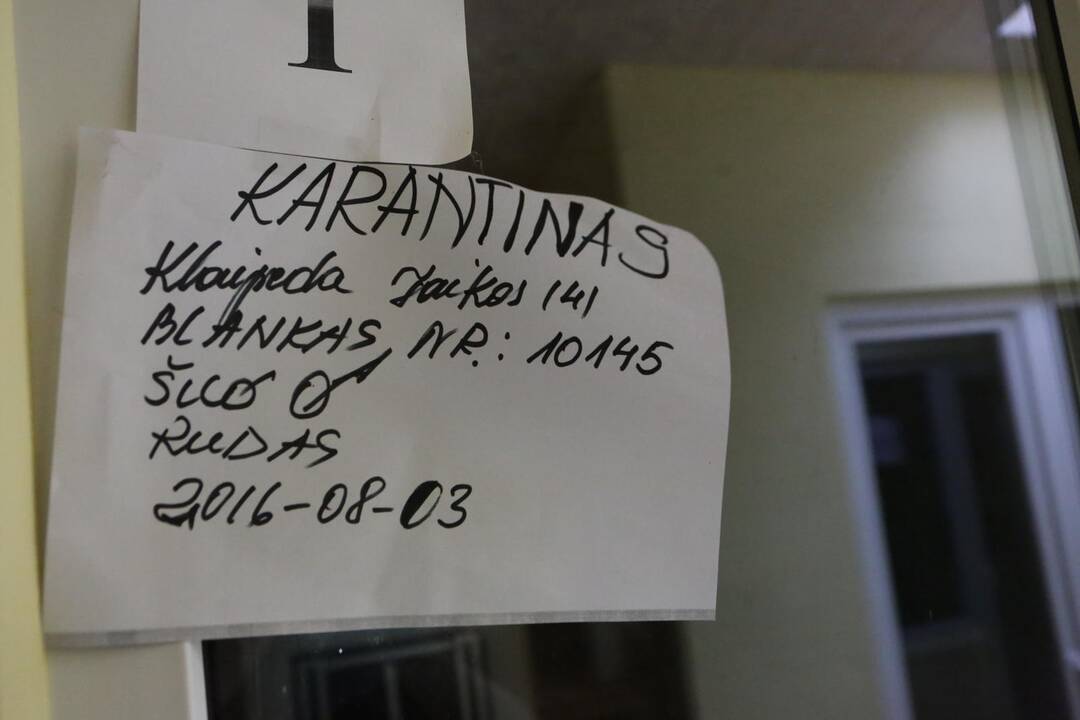 1
KARANTINAS
Klaipeda Taikos 141
BLANKAS NR.: 10145
ŠUO ♂
RUDAS
2016-08-03